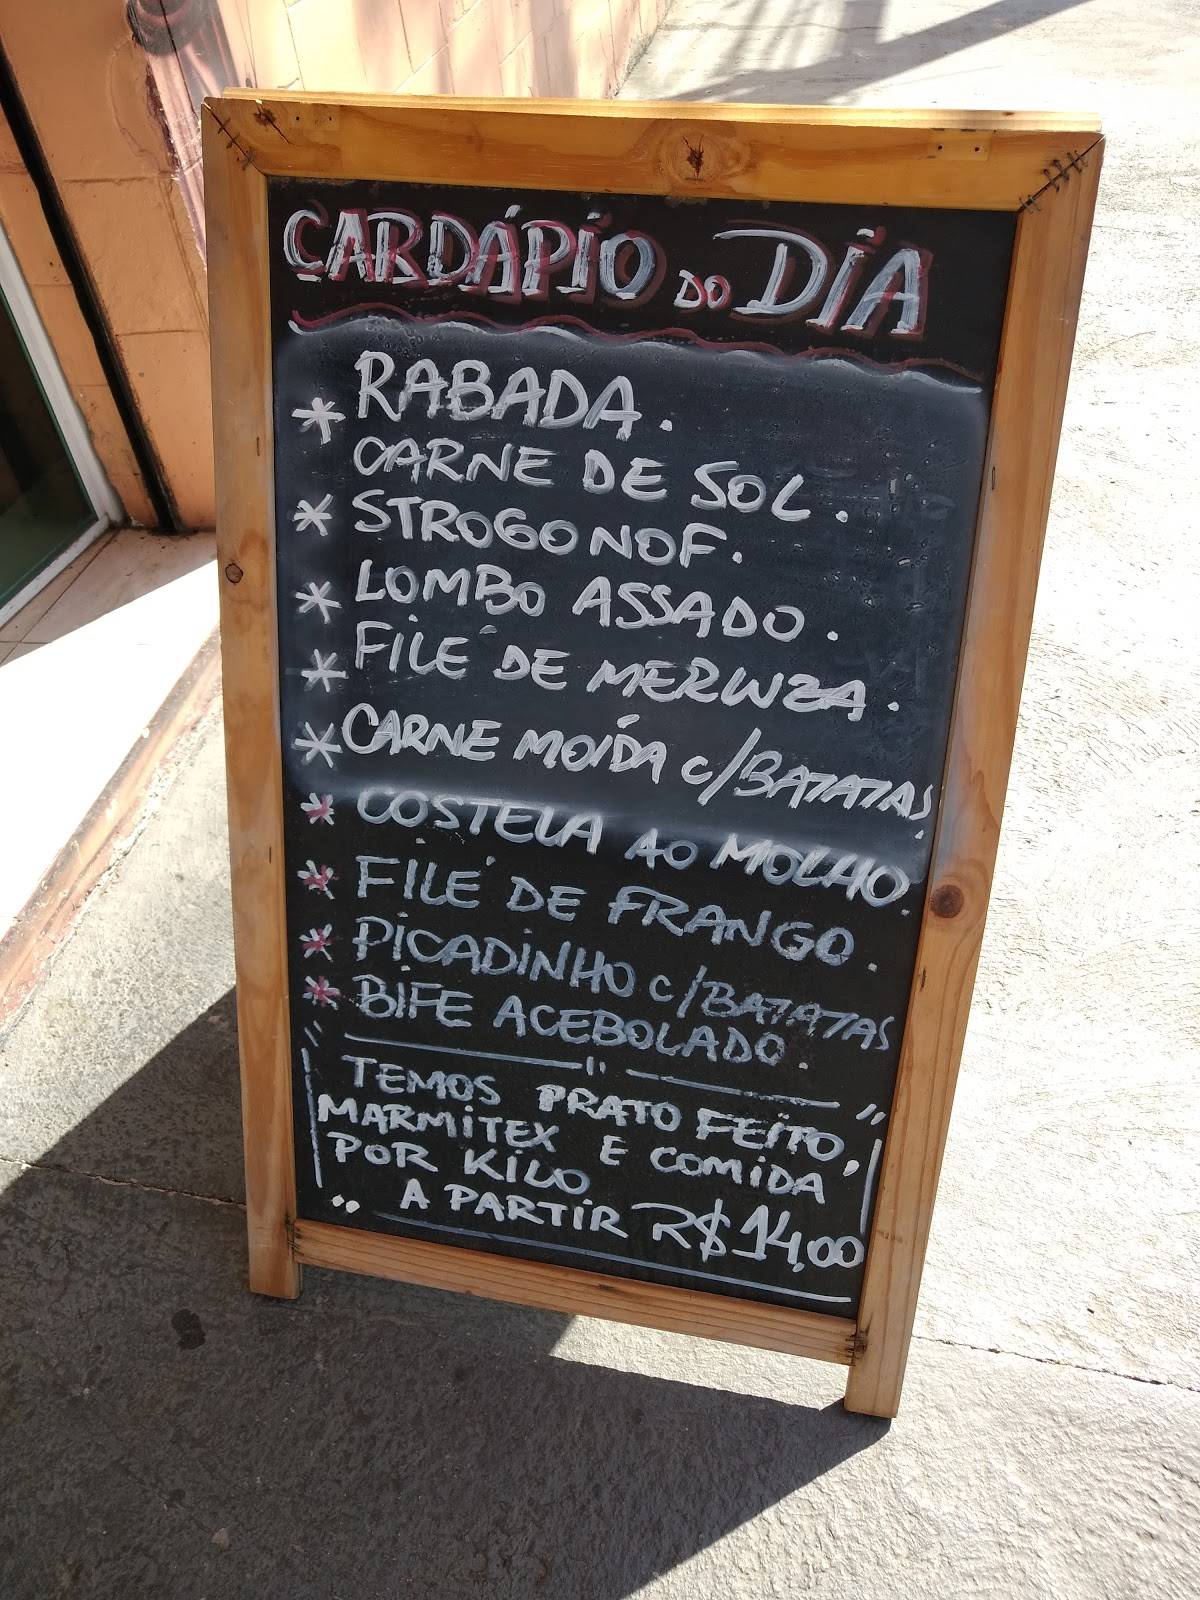 CARDÁPIO DO DIA
* RABADA.
CARNE DE SOL.
* STROGONOF.
* LOMBO ASSADO.
* FILÉ DE MERLUZA.
* CARNE MOÍDA C/BATATAS
* COSTELA AO MOLHO.
* FILÉ DE FRANGO.
* PICADINHO C/BATATAS
* BIFE ACEBOLADO.
TEMOS PRATO FEITO,
MARMITEX E COMIDA
POR KILO
A PARTIR R$14,00